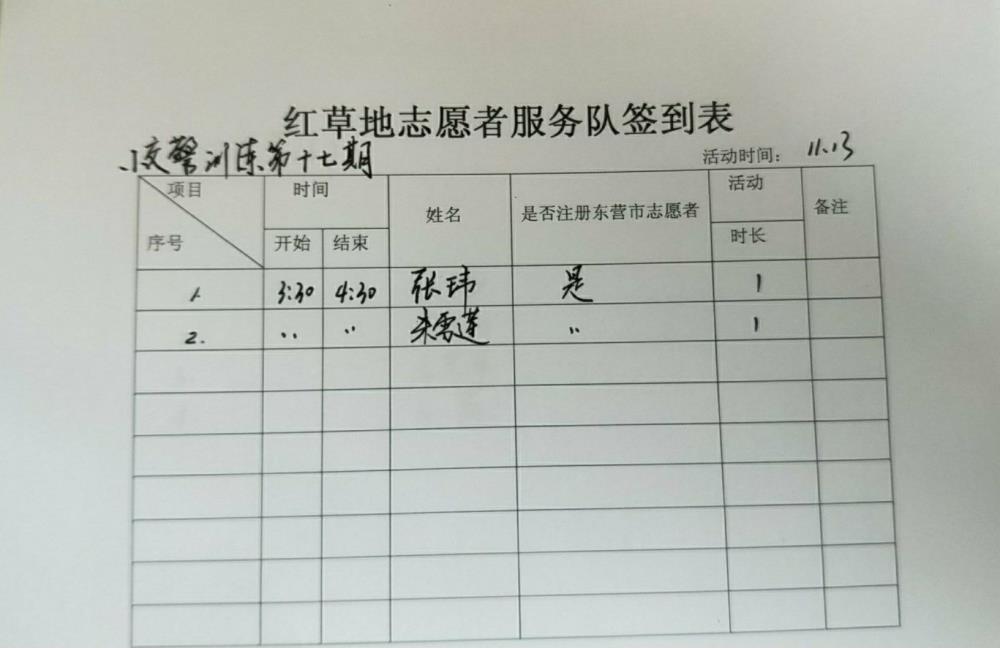 红草地志愿者服务队签到表
小交警训练第十七期
活动时间: 11.13
项目 时间 姓名 是否注册东营市志愿者 活动 备注
序号 开始 结束 时长
1. 3:30 4:30 张玮 是 1
2. 〃 〃 朱雪莲 〃 1